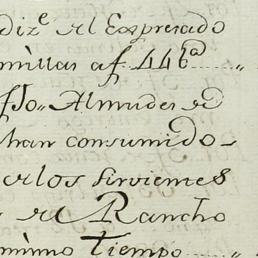 dize el Expresado
millas af 446a
Almudes de
han consumido
e los sirvientes
el Rancho
mismo tiempo